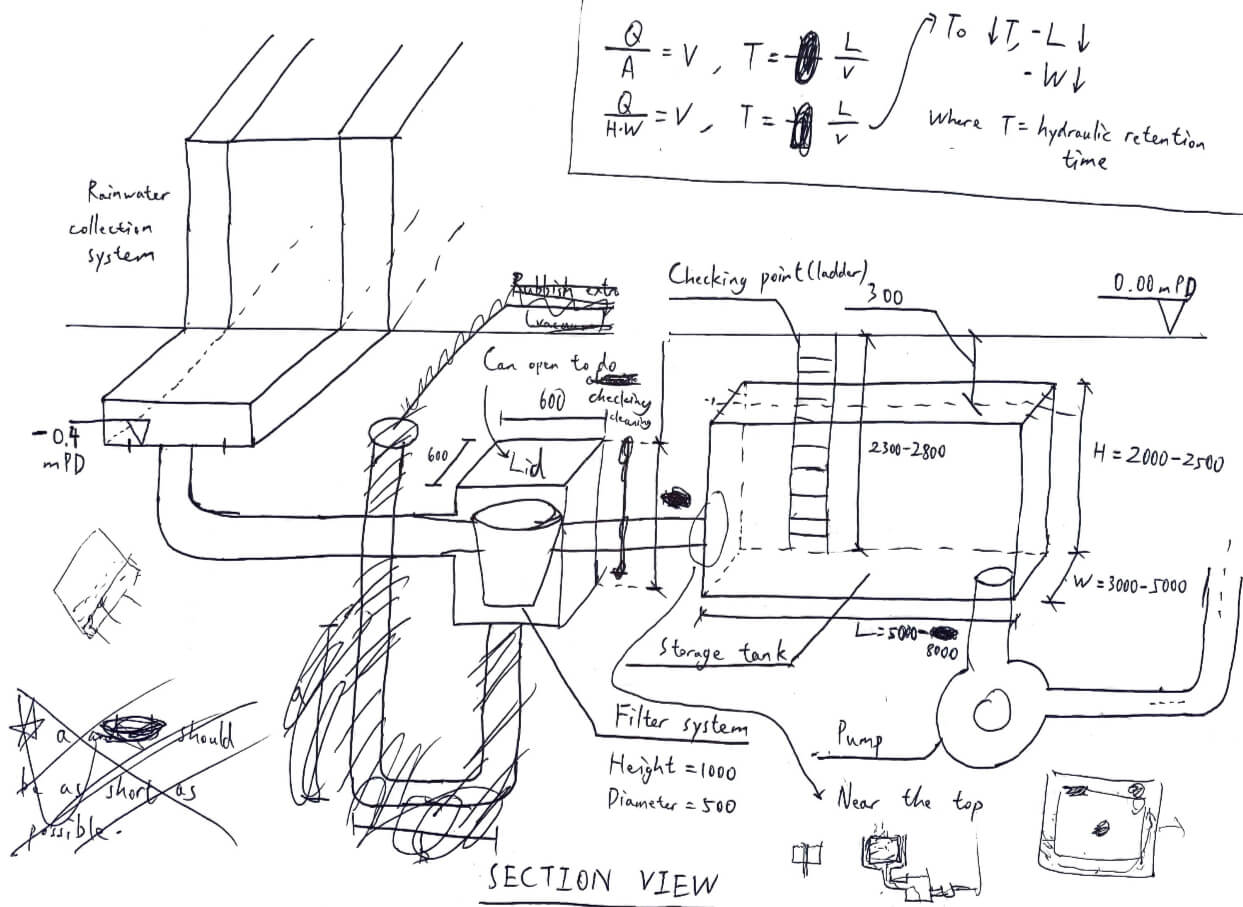 Q/A = V, T = L/V
Q/H·W = V, T = L/V
To ↓T, - L ↓
- W ↓
Where T = hydraulic retention
time
Rainwater
collection
system
Rubbish extr
(vacuum)
Checking point (ladder)
300
0.00 mPD
Can open to do
checking
cleaning
600
600
Lid
-0.4
mPD
2300-2800
H = 2000-2500
W = 3000-5000
L = 5000-
8000
Storage tank
Filter system
Height = 1000
Diameter = 500
Pump
Near the top
☆ a and should
be as short as
possible.
SECTION VIEW